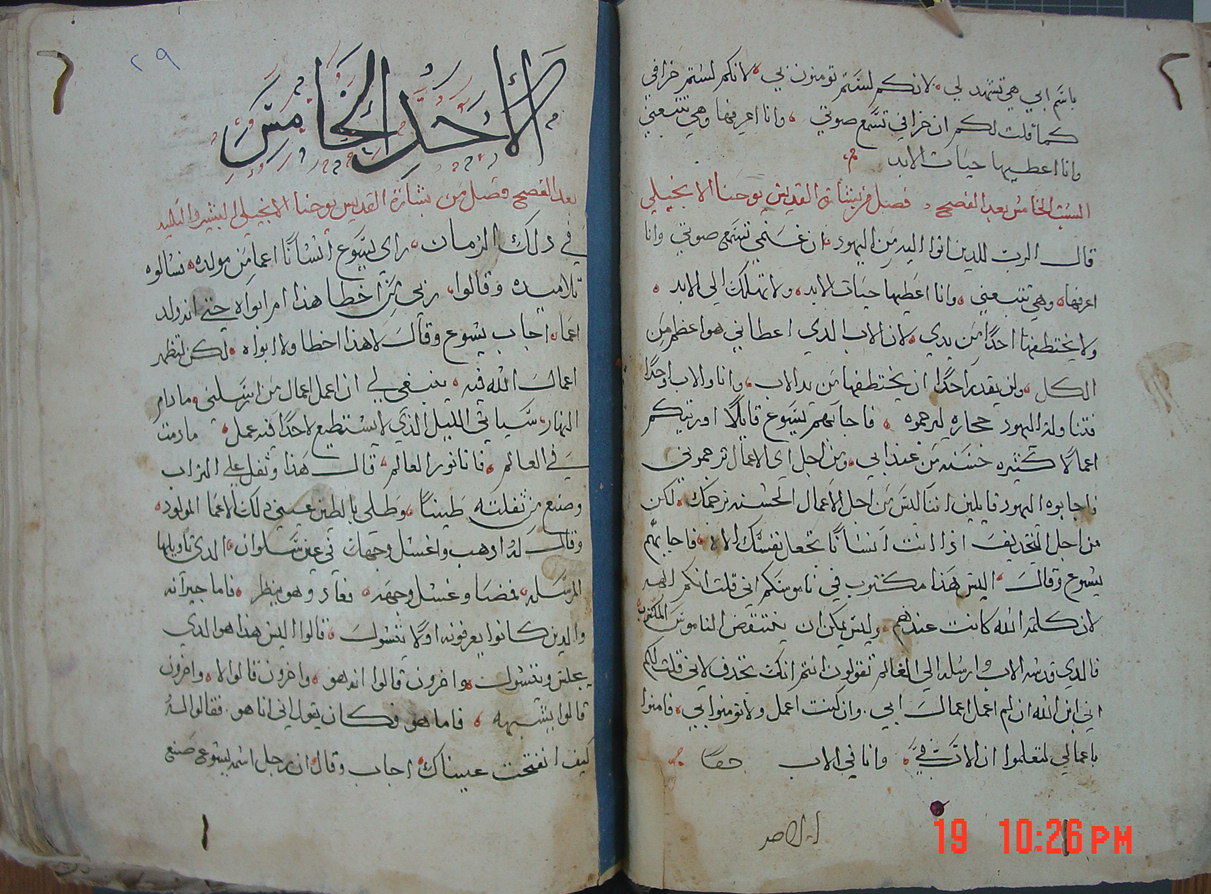 باسم ابي هو تشهد لي لانكم لستم تومنون بي لانكم لستم خرافي
كما قلت لكم ان خرافي تسمع صوتي وانا اعرفها وهي تتبعني
وانا اعطيها حيات الابد
السبت الخامس بعد الفصح فصل من بشارة القديس يوحنا الانجيلي
قال الرب للدين اتوا اليه من اليهود ان غنمي تسمع صوتي وانا
اعرفها وهي تتبعني وانا اعطيها حيات الابد ولا تهلك الي الابد
ولا يختطفها احدًا من يدي لان الاب الدي اعطاني هو اعظم من
الكل ولن يقدر احدًا ان يختطفها من يد الاب وانا والاب واحدًا
فتناولة اليهود حجاره ليرجموه فاجابهم يسوع قايلًا اوريتكم
اعمالًا كثيره حسنه من عند ابي ومن اجل اي الاعمال ترجموني
فاجابوه اليهود قايلين اننا ليس من اجل الاعمال الحسنه نرجمك لكن
من اجل التجديف اذا انت انسانًا تجعل نفسك الاه فاجابهم
يسوع وقال اليس هذا مكتوب في ناموسكم اني قلت انكم الهه
لان كلمة الله كانت عندهم وليس يمكن ان ينتقض الناموس المكتوب
فالدي قدسه الاب وارسله الي العالم تقولون انتم انك تجدف لاني قلت لكم
اني ابن الله ان لم اعمل اعمال ابي وان كنت اعمل ولا تومنوا بي فامنوا
باعمالي لتعلموا ان الاب فيَّ وانا في الاب حقًا
٢٩
الاحد الخامس
بعد الفصح فصل من بشارة القديس يوحنا الانجيلي البشير التلميد
في دلك الزمان راى يسوع انسانًا اعما من مولده فسالوه
تلاميده وقالوا ربي من اخطا هذا ام ابواه حتي انه ولد
اعما اجاب يسوع وقال لا هذا اخطا ولا ابواه لكن لتظهر
اعمال الله فيه ينبغي لي ان اعمل اعمال من ارسلني ما دام
النهار سياتي الليل الذي لا يستطيع لاحدًا فيه عمل ما دمت
في العالم فانا نور العالم قال هذا وتفل على التراب
وصنع من تفلته طينًا وطلي بالطين عيني دلك الاعما المولود
وقال له ادهب واغسل وجهك في عين سلوان الدي تاويلها
المرسله فمضا وغسل وجهه فعاد وهو ينظر فاما جيرانه
والدين كانوا يعرفونه اولًا يتسول قالوا اليس هذا هو الدي
يجلس ويتسول واخرون قالوا انه هو واخرون قالوا لا واخرون
قالوا يشبهه فاما هو فكان يقول اني انا هو فقالوا له
كيف انفتحت عيناك اجاب وقال ان رجل اسمه يسوع صنع
19 10:26 PM